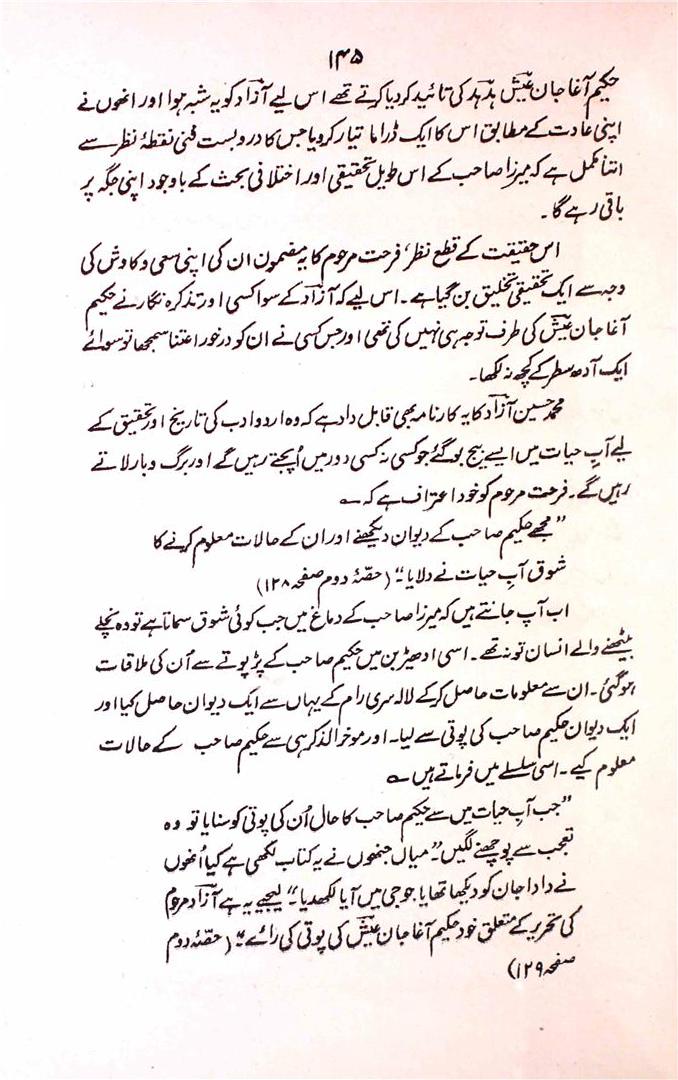 ۱۴۵
حکیم آغا جان عیشؔ ہدہد کی تائید کر دیا کرتے تھے اس لیے آزادؔ کو یہ شبہ ہوا اور انھوں نے
اپنی عادت کے مطابق اس کا ایک ڈراما تیار کر دیا جس کا دروبست فنی نقطۂ نظر سے
اتنا مکمل ہے کہ میرزا صاحب کے اس طویل تحقیقی اور اختلافی بحث کے باوجود اپنی جگہ پر
باقی رہے گا۔
اس حقیقت کے قطع نظر، فرحت مرحوم کا یہ مضمون ان کی اپنی سعی و کاوش کی
وجہ سے ایک تحقیقی تخلیق بن گیا ہے۔ اس لیے کہ آزادؔ کے سوا کسی اور تذکرہ نگار نے حکیم
آغا جان عیشؔ کی طرف توجہ ہی نہیں کی تھی اور جس کسی نے ان کو درخور اعتنا سمجھا تو سوائے
ایک آدھ سطر کے کچھ نہ لکھا۔
محمد حسین آزادؔ کا یہ کارنامہ بھی قابل داد ہے کہ وہ اردو ادب کی تاریخ اور تحقیق کے
لیے آبِ حیات میں ایسے بیج بو گئے جو کسی نہ کسی دور میں اُپجتے رہیں گے اور برگ و بار لاتے
رہیں گے۔ فرحت مرحوم کو خود اعتراف ہے کہ ؎
”مجھے حکیم صاحب کے دیوان دیکھنے اور ان کے حالات معلوم کرنے کا
شوق آبِ حیات نے دلایا۔“ (حصّۂ دوم صفحہ ۱۲۸)
اب آپ جانتے ہیں کہ میرزا صاحب کے دماغ میں جب کوئی شوق سماتا ہے تو وہ نچلے
بیٹھنے والے انسان تو نہ تھے۔ اسی ادھیڑ بن میں حکیم صاحب کے پڑپوتے سے اُن کی ملاقات
ہو گئی۔ ان سے معلومات حاصل کرکے لالہ سری رام کے یہاں سے ایک دیوان حاصل کیا اور
ایک دیوان حکیم صاحب کی پوتی سے لیا۔ اور موخر الذکر ہی سے حکیم صاحب کے حالات
معلوم کیے۔ اسی سلسلے میں فرماتے ہیں ؎
”جب آبِ حیات میں سے حکیم صاحب کا حال اُن کی پوتی کو سنایا تو وہ
تعجب سے پوچھنے لگیں۔ ”میاں جنھوں نے یہ کتاب لکھی ہے کیا اُنھوں
نے دادا جان کو دیکھا تھا یا جو جی میں آیا لکھدیا۔“ لیجیے یہ ہے آزادؔ مرحوم
کی تحریر کے متعلق خود حکیم آغا جان عیشؔ کی پوتی کی رائے۔“ (حصّۂ دوم
صفحہ ۱۲۹)